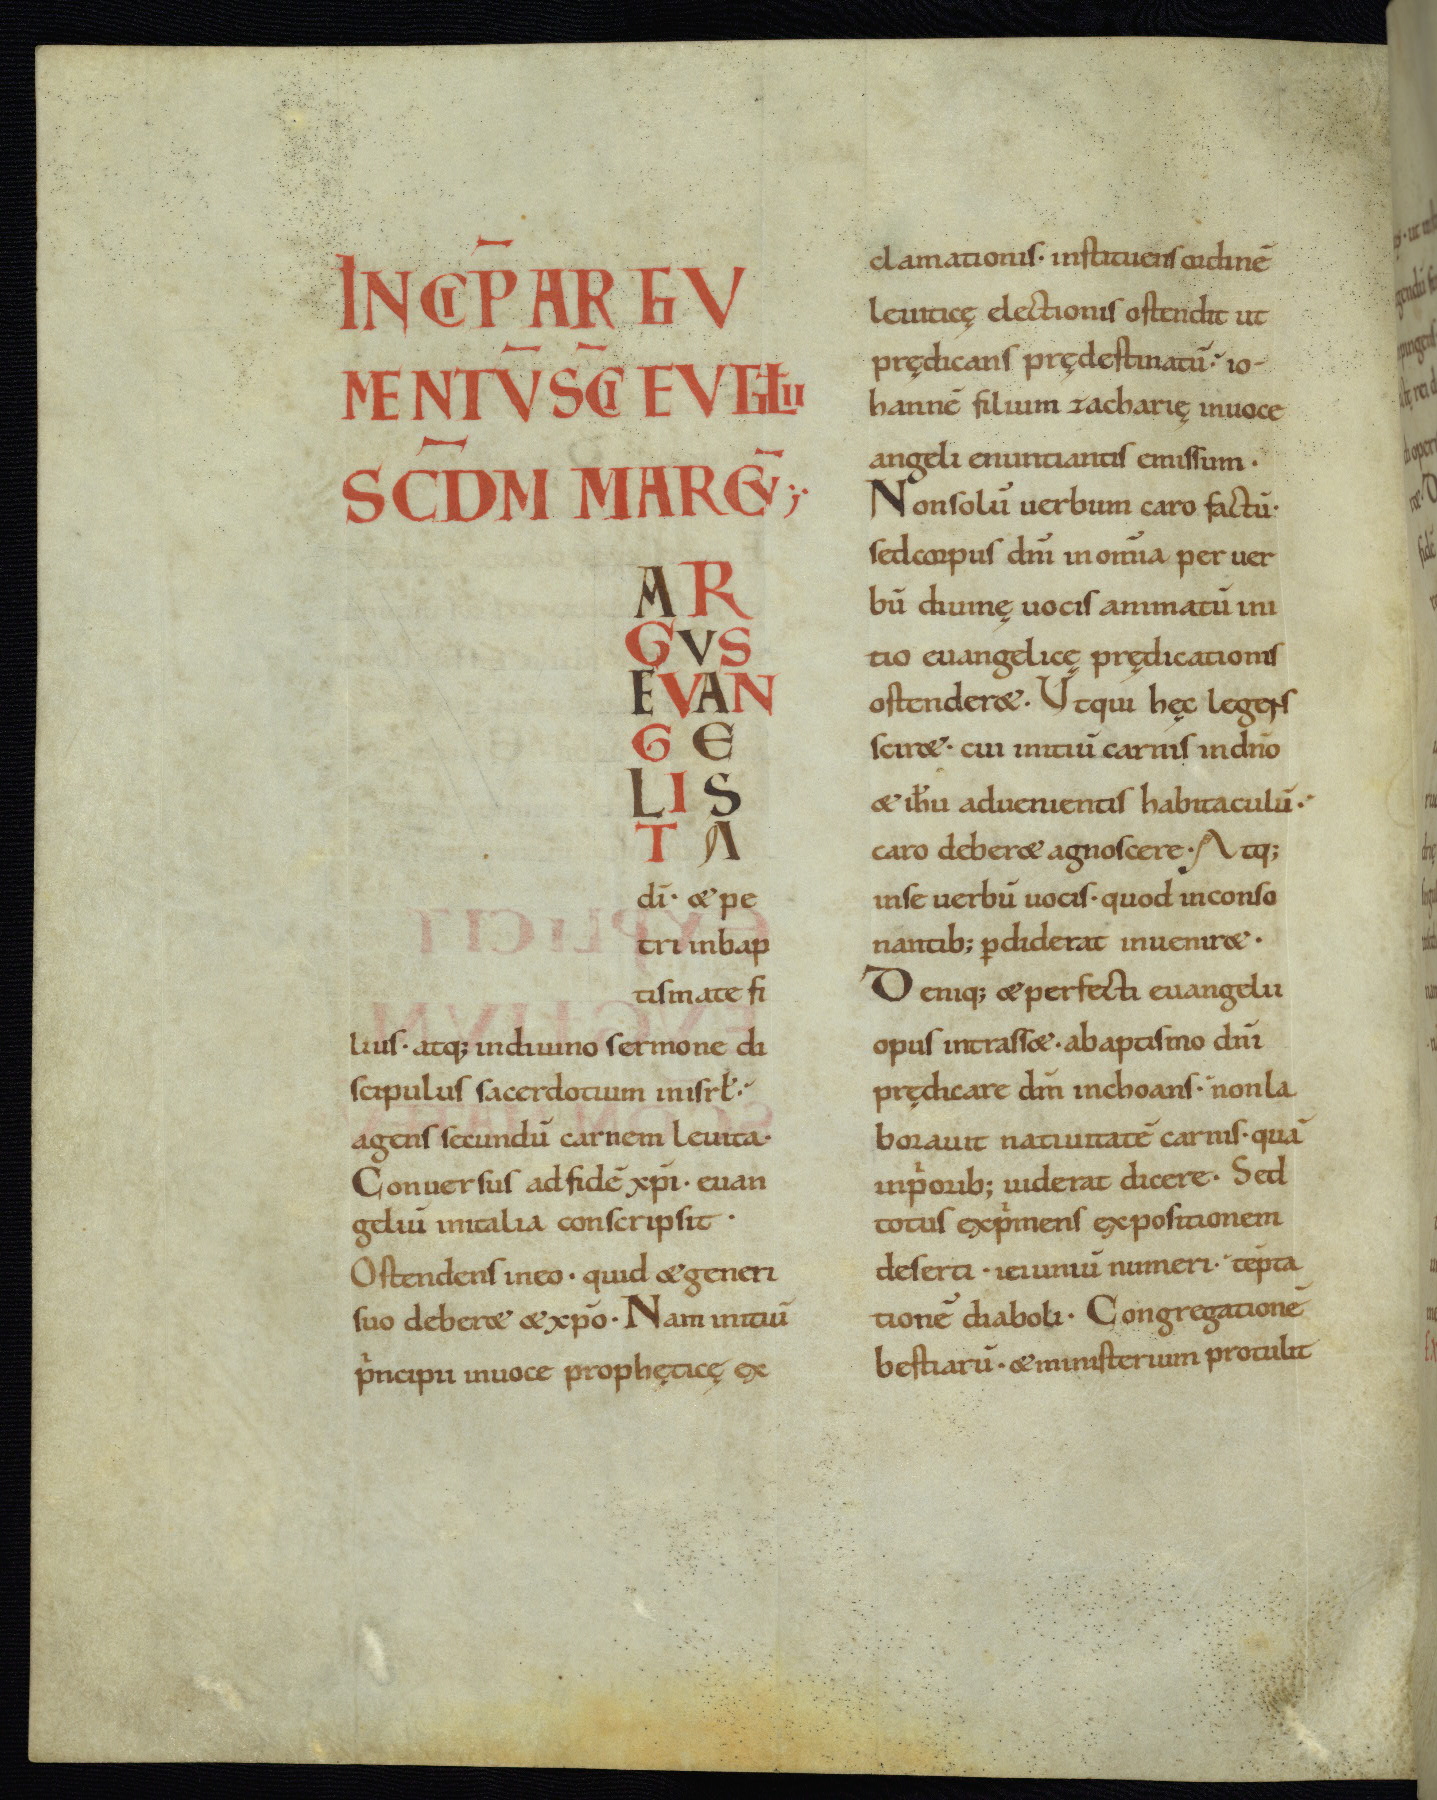 INCIP̄ ARGU
MENTŪ SC̄I EVGŁII
SC̄DM MARCV̄;
AR
GVS
EVAN
GE
LIS
TA
dī· & pe
tri in bap
tismate fi
lius· atq; indiuino sermone di
scipulus sacerdotium inisrƚ·
agens secundū carnem leuita·
Conuersus adfidē xp̄i· euan
geliū initalia conscripsit·
Ostendens ineo· quid & generi
suo deber& & xp̄o· Nam initiū
pͥncipii inuoce prophęticę ex
clamationis· instituens ordinē
leuiticę electionis ostendit ut
prędicans prędestinatū· io-
hannē filium zacharię inuoce
angeli enuntiantis emissum·
Nonsolū uerbum caro factū·
sedcorpus dn̄i in omīa per uer
bū diuinę uocis animatū ini
tio euangelicę prędicationis
ostender&· Vtqui hęc legens
scir&· cui initiū carnis indn̄o
& ih̄u aduenientis habitaculū·
caro deber& agnoscere· Atq;
inse uerbū uocis· quod inconso
nantib; ꝑdiderat inuenir&·
Deniq; & perfecti euangelii
opus intrass&· abaptismo dn̄i
prędicare dm̄ inchoans· nonla
borauit natiuitatē carnis· quā
inpͥorib; uiderat dicere· Sed
totus expͥmens expositionem
deserti· ieiuniū numeri· tēpta
tionē diaboli· Congregationē
bestiarū· & ministerium protulit